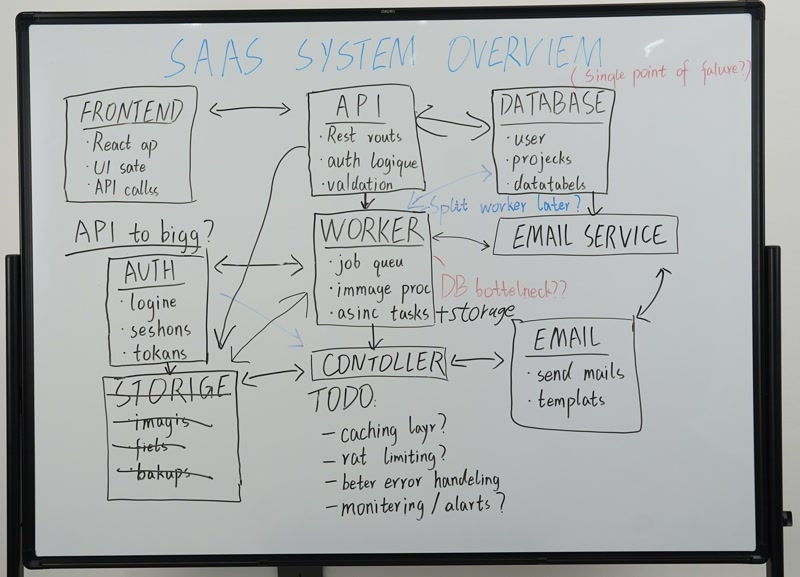 SAAS SYSTEM OVERVIEM
(single point of falure?)
FRONTEND
· React ap
· UI sate
· API callss
API
· Rest routs
· auth logique
· valdation
DATABASE
· user
· projecks
· datatabels
Split worker later?
API to bigg?
WORKER
· job queu
· immage proc
· asinc tasks + storage
EMAIL SERVICE
DB bottelneck??
AUTH
· logine
· seshons
· tokans
CONTOLLER
EMAIL
· send mails
· templats
STORIGE
· imagis
· fiels
· bakups
TODO:
– caching layr?
– rat limiting?
– beter error handeling
– monitering / alarts?